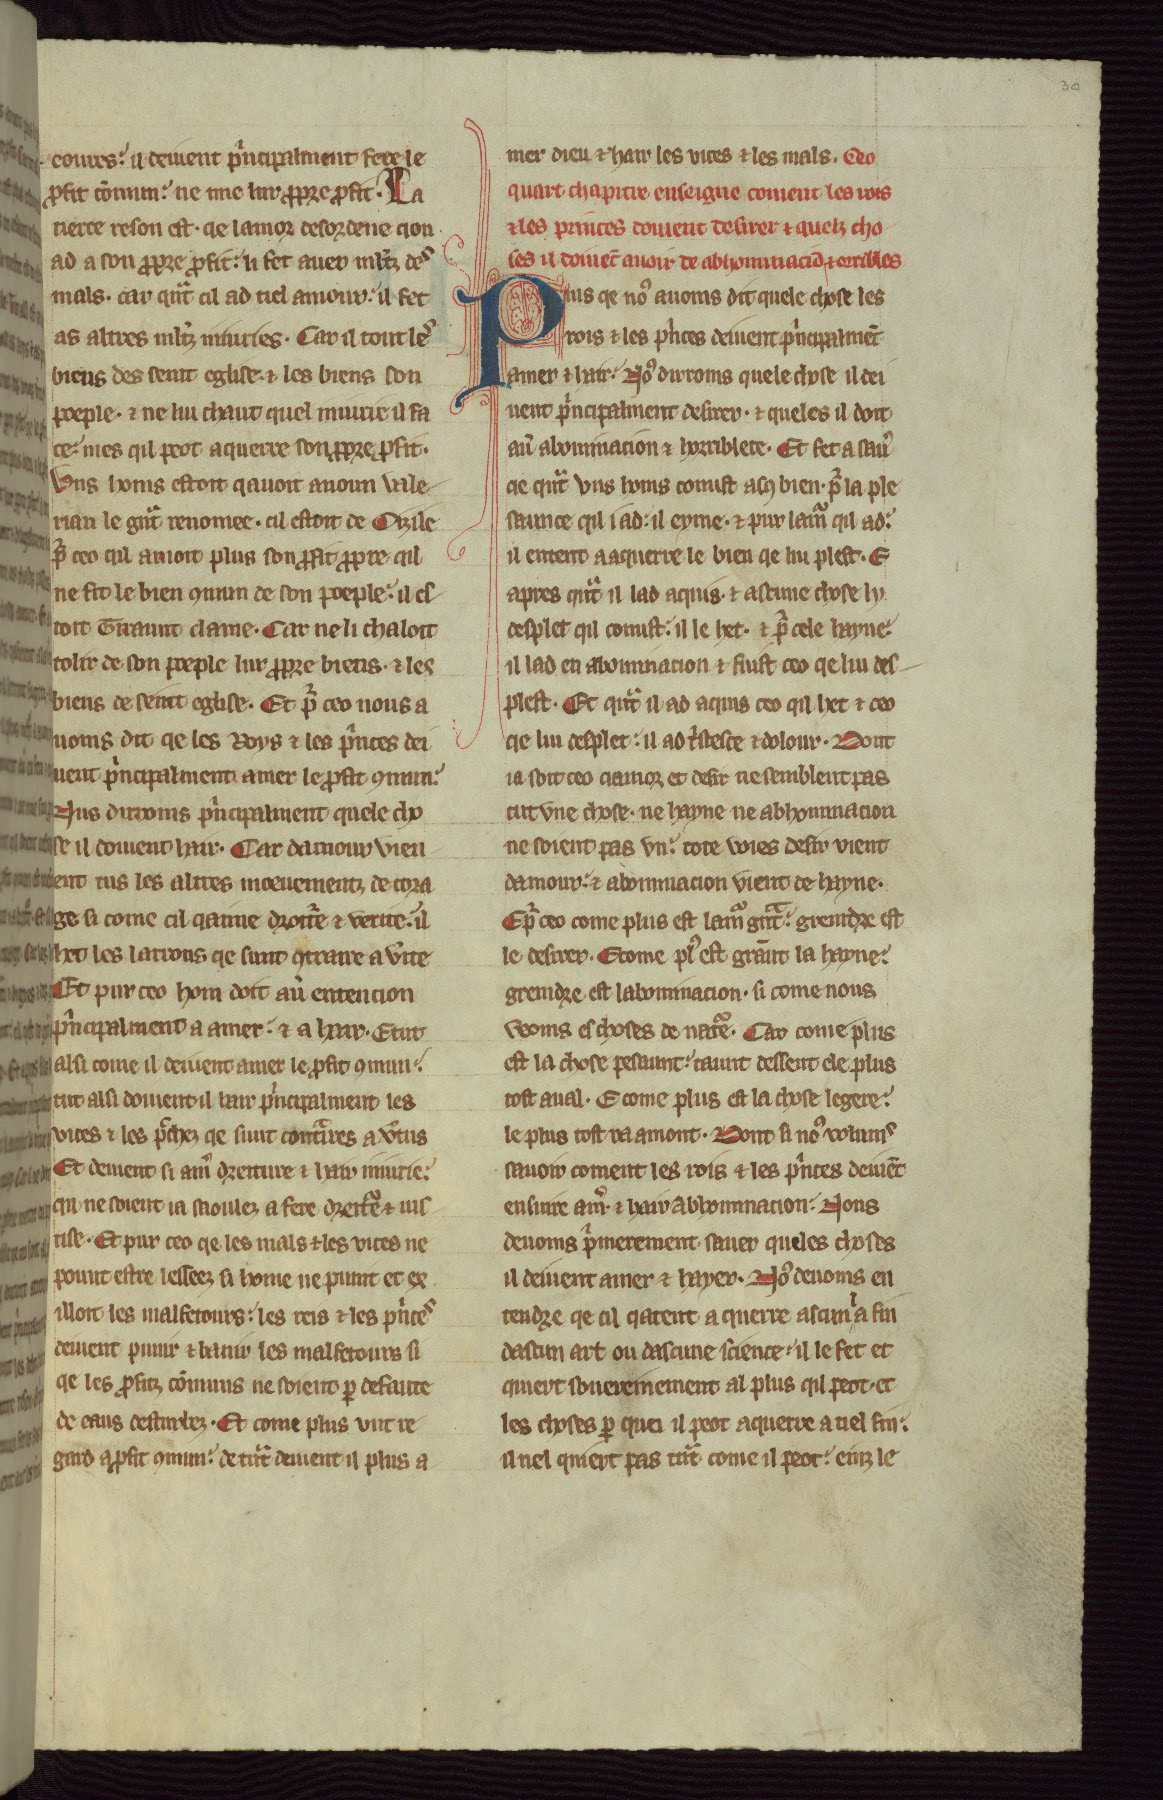 30
coures: il deiuent p͛ncipalment fere le
ꝓfit cōmun: ne mie lur ꝓpre ꝓfit. La
tierce reson est. qe lamor desordene qon
ad a son ꝓpre ꝓfit: li fet auer mltz des
mals. car qnt cil ad tiel amour: il fet
as altres mltz iniuries. Car il tout les
biens des seint eglise. & les biens son
poeple. & ne lui chaut quel iniurie il fa
ce: mes qil peot aquerre son ꝓpre ꝓfit.
Vns homs estoit qauoit anoun vale
rian le gnt renomee. cil estoit de Cizile
p͛ ceo qil amoit plus son ꝓfit ꝓpre qil
ne fit le bien 9mun de son poeple: il es
toit Tiraunt clame. Car ne li chaloit
tolir de son poeple lur ꝓpre biens. & les
biens de seint eglise. Et p͛ ceo nous a
uoms dit qe les Roys & les p͛nces dei
uent p͛ncipalment amer le ꝓfit 9mun:
Nus dirroms p͛ncipalment quele cho
se il doiuent hair. Car damour vien
ent tus les altres moeuementz de cora
ge si come cil qaime droit͛e & verite: il
het les latrons qe sunt 9traire a v͛ite
Et pur ceo hom doit au͛ entencion
p͛ncipalment a amer: & a hair. Etut
alsi come il deiuent amer le ꝓfit 9mun:
tut alsi doiuent il hair p͛ncipalment les
vices & les pechez qe sunt contͣires a v͛tus
Et deiuent si am͛ dreiture & hair iniurie:
qil ne soient ia saoulez a fere dreit͛e & ius
tise. Et pur ceo qe les mals & les vices ne
pount estre lesseez si home ne punit et ex
illoit les malfetours: les reis & les p͛nces
deiuent punir & banir les malfetours si
qe les ꝓfitz cōmuns ne soient ꝑ defaute
de eaus desturbez. Et come plus vnt re
gard a ꝓfit 9mun: de tͣnt deiuent il plus a
mer dieu & hair les vices & les mals. Ceo
quart chapitre enseigne coment les rois
& les princes doiuent desirer & quelz cho
ses il doiuēt auoir de abhominaciō & orribles
Puis qe no9 auoms dit quele chose les
rois & les p͛nces deiuent p͛ncipalmēt
amer & hair: No9 dirroms quele chose il dei
uent p͛ncipalment desirer. & queles il doit
au͛ abominacion & horriblete. Et fet a sau͛
qe qnt vns homs conust asq bien. p͛ la ple
saunce qil i ad: il eyme. & pur lam͛ qil ad:
il entent a aquerre le bien qe lui plest. E
apres qnt il lad aquis. & ascune chose ly
desplet qil conust: il le het. & p͛ cele hayne:
il lad en abominacion & fiust ceo qe lui des
plest. Et qnt il ad aquis ceo qil het & ceo
qe lui desplet: il ad t͛stesce & dolour. Dont
ia soit ceo qamor et desir ne semblent pas
tut vne chose. ne hayne ne abhominacion
ne soient pas vn: tote voies desir vient
damour: & abominacion vient de hayne.
E p͛ ceo come plus est lam͛ gnt: greindre est
le desirer. E come pl9 est grāt la hayne:
greindre est labominacion. si come nous
veoms es choses de nat͛e. Car come plus
est la chose pesaunt: taunt dessent ele plus
tost aual. E come plus est la chose legere:
le plus tost va amont. Dont si no9 volums
sauoir coment les rois & les p͛nces deiuēt
ensuire am͛ & hair Abhominacion: Nous
deuoms p͛merement sauer queles choses
il deiuent amer & hayer. No9 deuoms en
tendre qe cil qatent a querre ascun͛a fin
dascun art ou dascune science: il le fet et
quiert souereinement al plus qil peot. et
les choses ꝑ quei il peot aquerre a tiel fin:
il nel quiert pas tͣnt come il peot: einz le